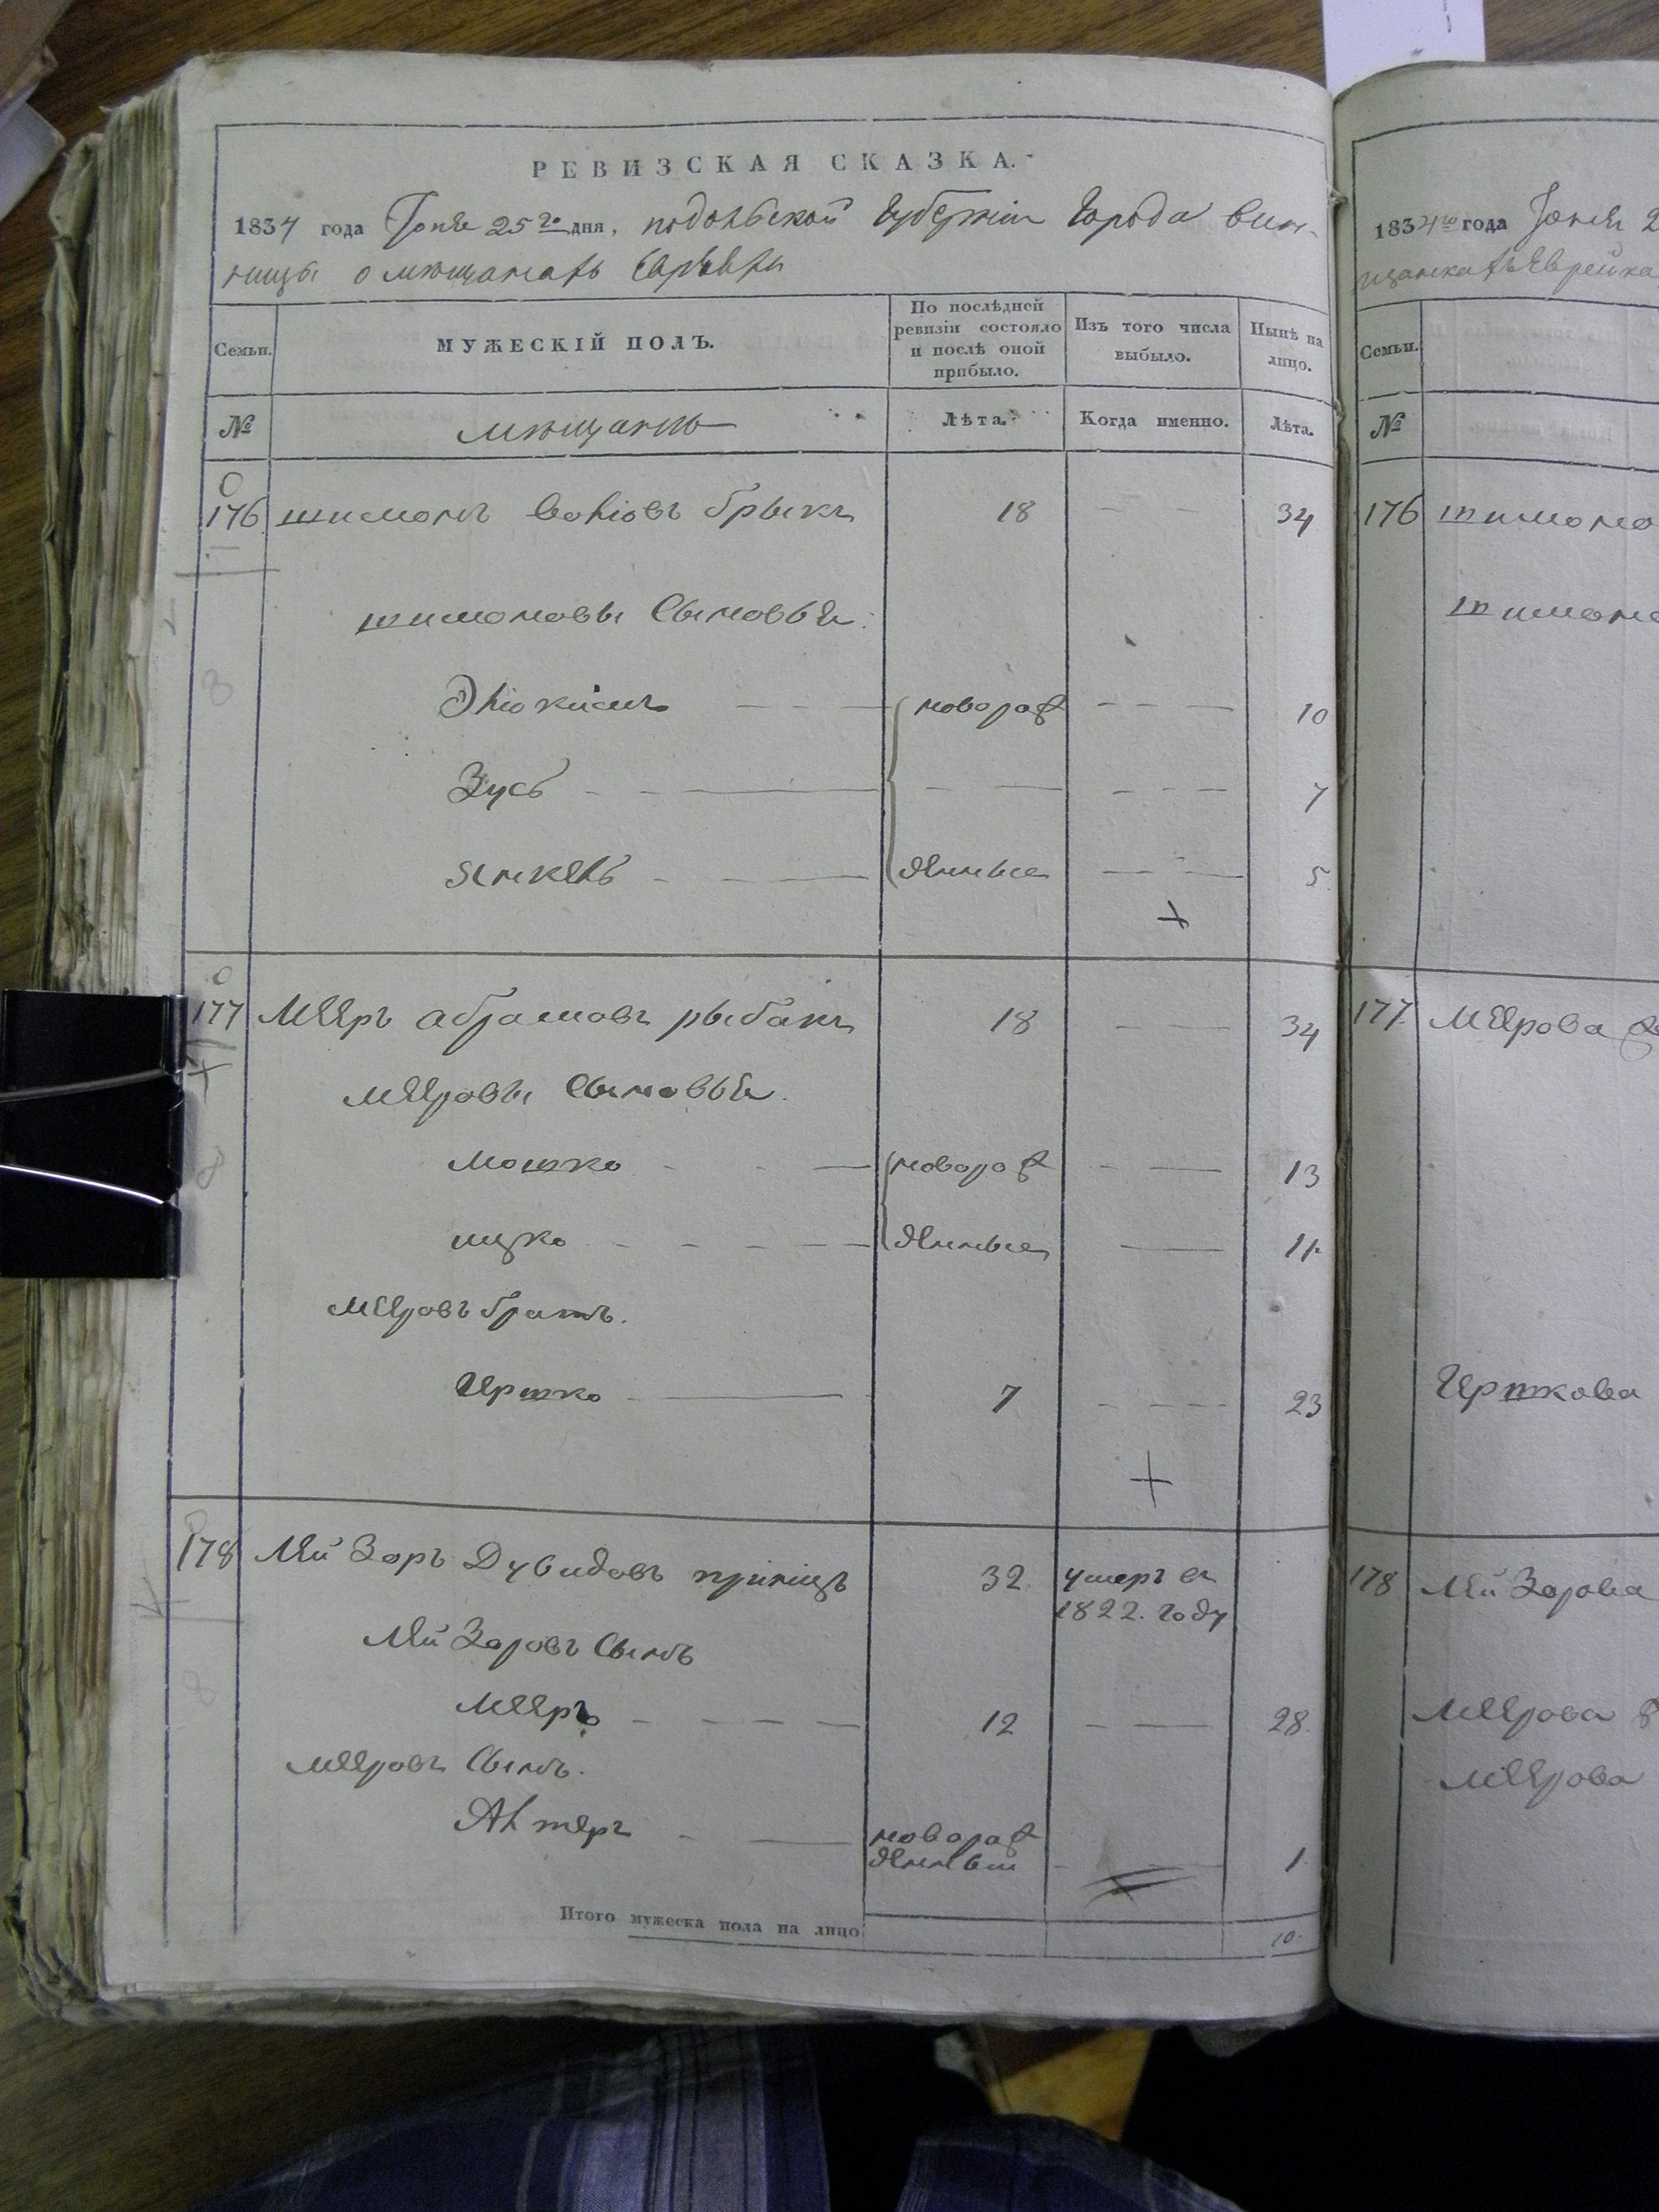 РЕВИЗСКАЯ СКАЗКА.
1834 года Іюня 25го дня, подольской Губерніи Города Вин-
ницы о мещанахъ Евреяхъ
Семьи.
МУЖЕСКІЙ ПОЛЪ.
По послѣдней ревизіи состояло и послѣ оной прибыло.
Изъ того числа выбыло.
Нынѣ на лицо.
№
мещане
Лѣта.
Когда именно.
Лѣта.
176 шимонъ брыкъ 18 34
шимоновы Сыновья
новорож 10
Зусь 7
янкель денные 5
177 Мееръ абрамовъ рыбакъ 18 34
мееровы Сыновья.
мошко новорож 13
ицко денные 11
мееровъ братъ.
Гершко 7 23
178 Лейзоръ Дувидовъ 32 умеръ въ
1822. году
Лейзоровъ Сынъ
мееръ 12 28.
мееровъ Сынъ.
Альтеръ новорож
денный 1
Итого мужеска пола на лицо 10.
1834го года Іюня 2
щанкахъ Еврейка
Семьи.
№
176 шимоно
шимоно
177. Меерова
Гершкова
178 Лейзорова
Меерова
меерова